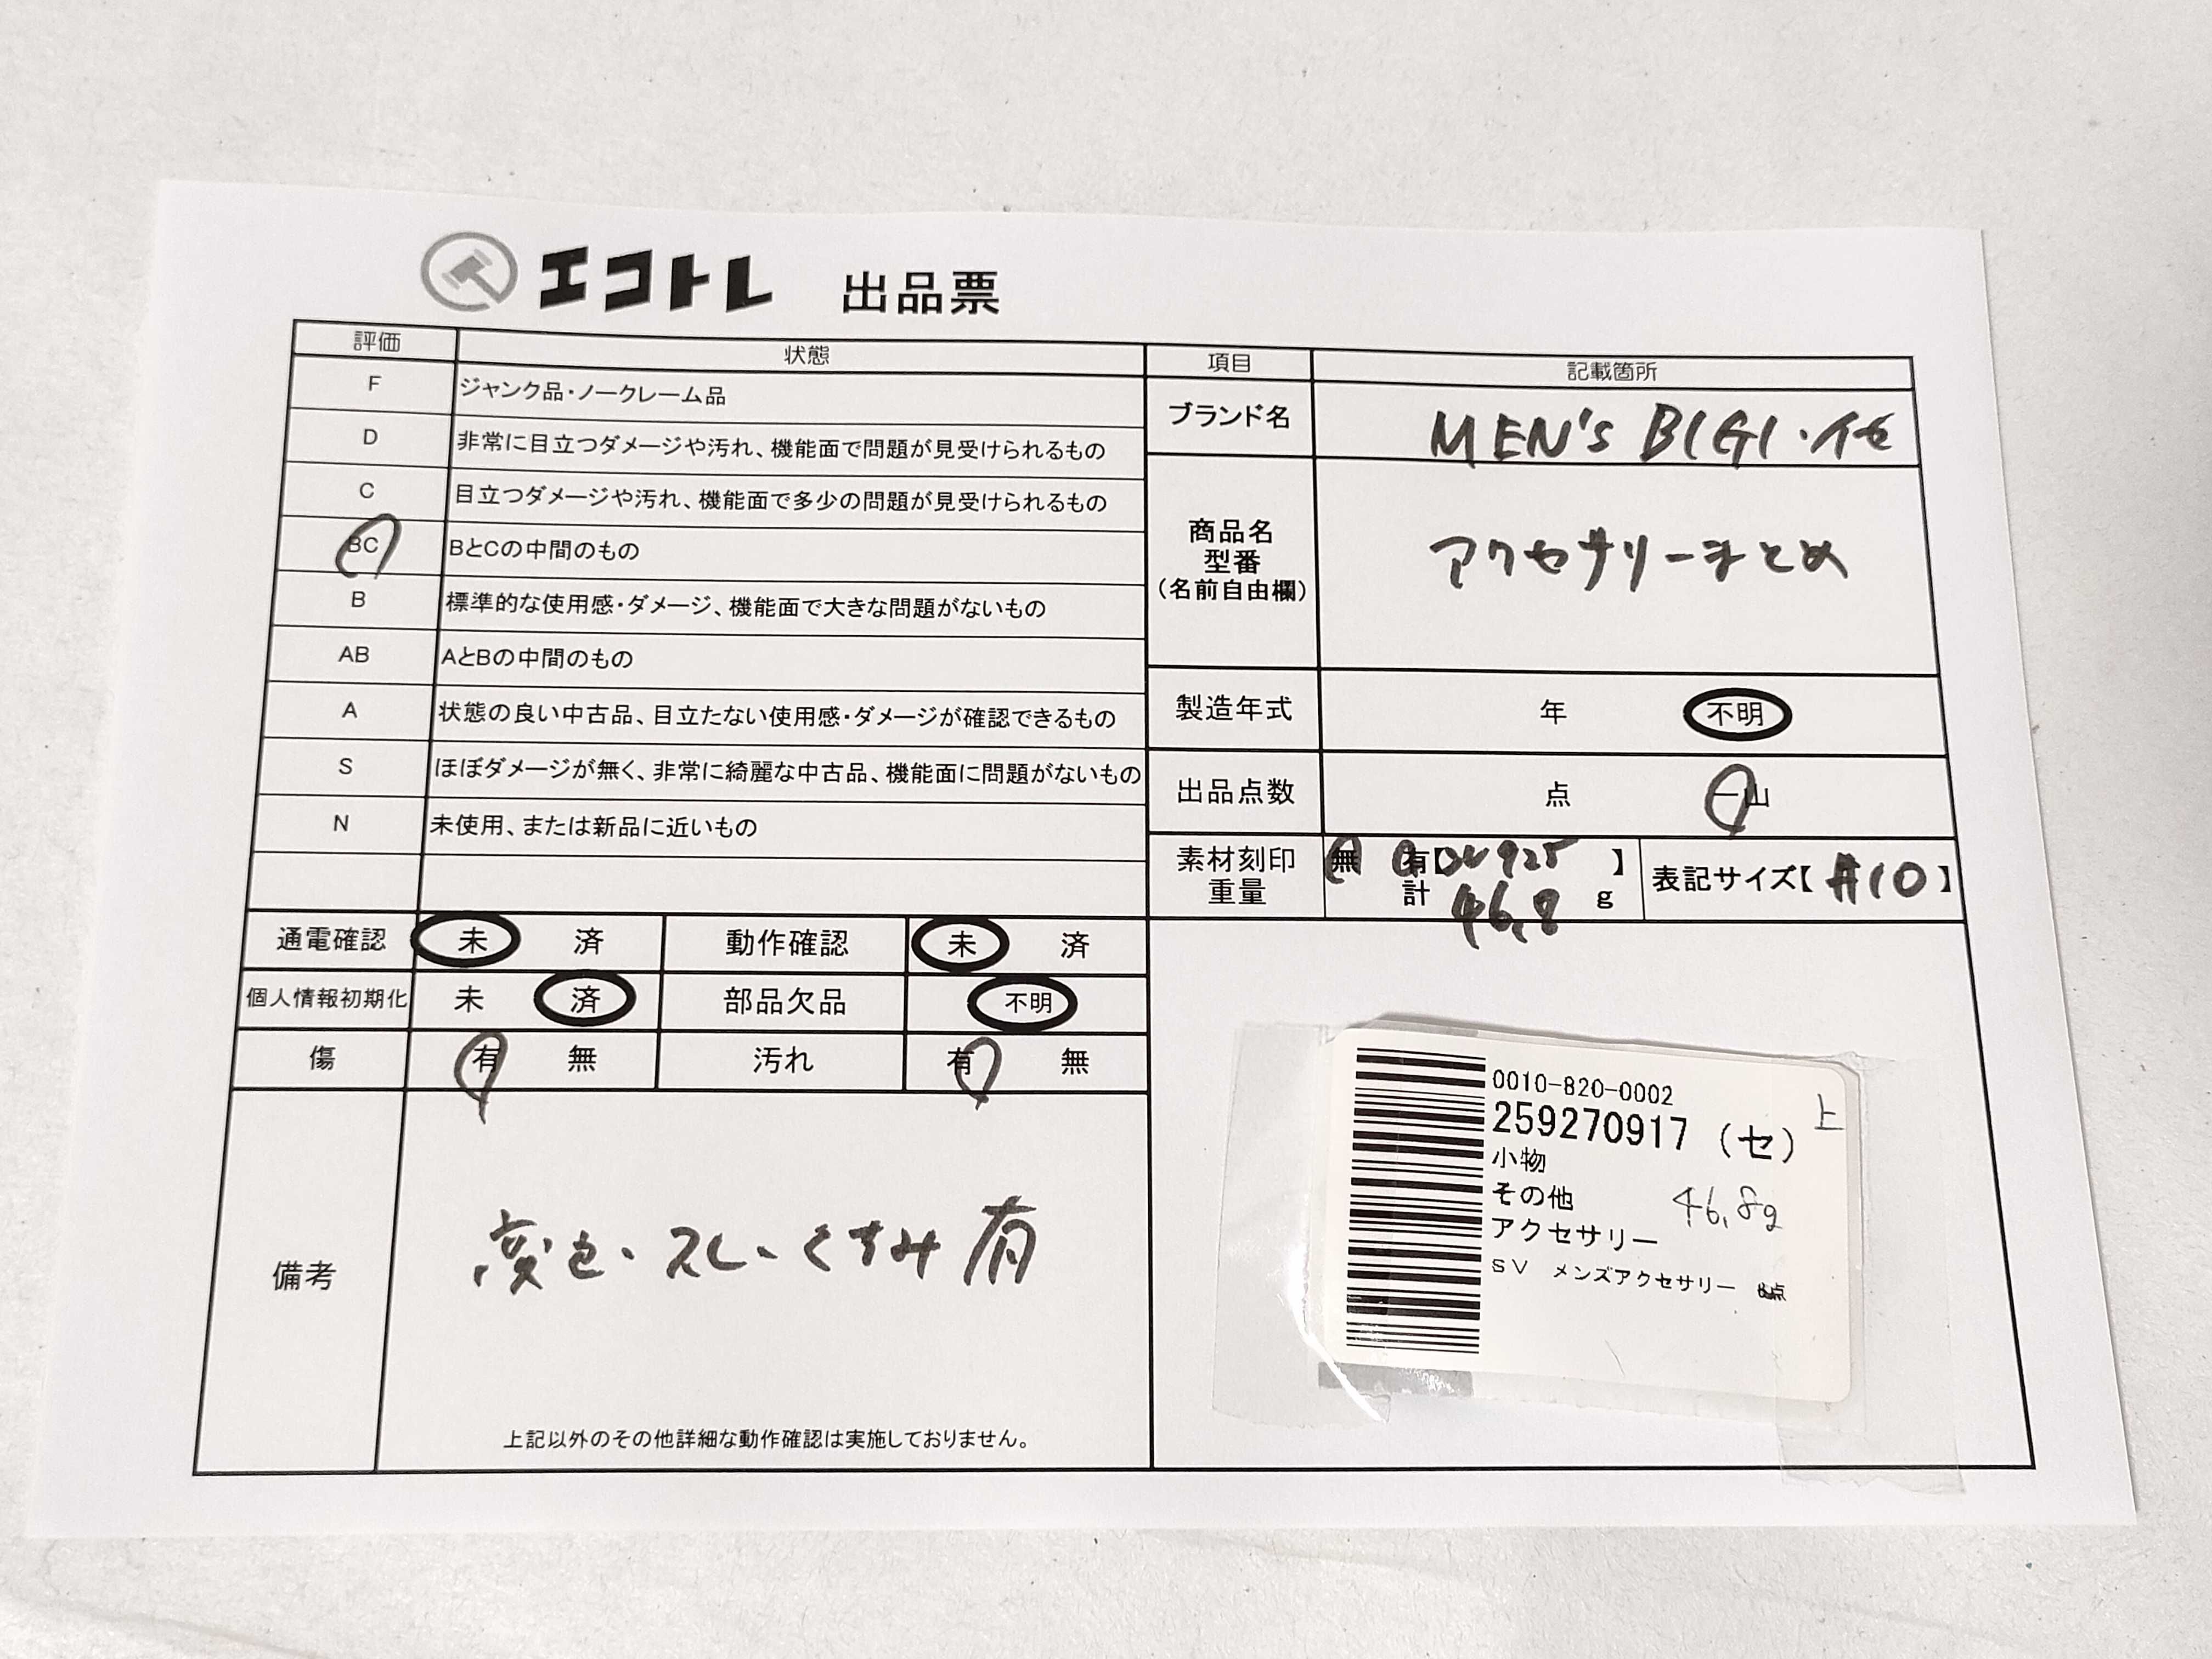 エコトレ 出品票
評価 状態
F ジャンク品・ノークレーム品
D 非常に目立つダメージや汚れ、機能面で問題が見受けられるもの
C 目立つダメージや汚れ、機能面で多少の問題が見受けられるもの
BC BとCの中間のもの
B 標準的な使用感・ダメージ、機能面で大きな問題がないもの
AB AとBの中間のもの
A 状態の良い中古品、目立たない使用感・ダメージが確認できるもの
S ほぼダメージが無く、非常に綺麗な中古品、機能面に問題がないもの
N 未使用、または新品に近いもの
通電確認 未 済 動作確認 未 済
個人情報初期化 未 済 部品欠品 不明
傷 有 無 汚れ 有 無
備考
変色、スレ、くすみ有
上記以外のその他詳細な動作確認は実施しておりません。
項目 記載箇所
ブランド名 MEN'S BIGI・他
商品名
型番
(名前自由欄)
アクセサリーまとめ
製造年式 年 不明
出品点数 点 一山
素材刻印 無 有【SV925】
重量 計 46.8 g
表記サイズ【#10】
0010-820-0002
259270917 (セ) 上
小物
その他 46.8g
アクセサリー
SV メンズアクセサリー 点